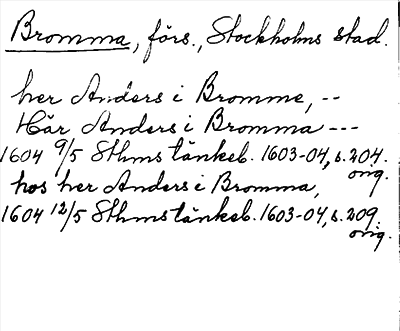 Bromma, förs., Stockholms stad.
her Anders i Bromme, --
Häär Anders i Bromma ---
1604 9/5 Sthms tänkeb. 1603-04, s. 204.
orig.
hos her Anders i Bromma,
1604 12/5 Sthms tänkeb. 1603-04, s. 209.
orig.